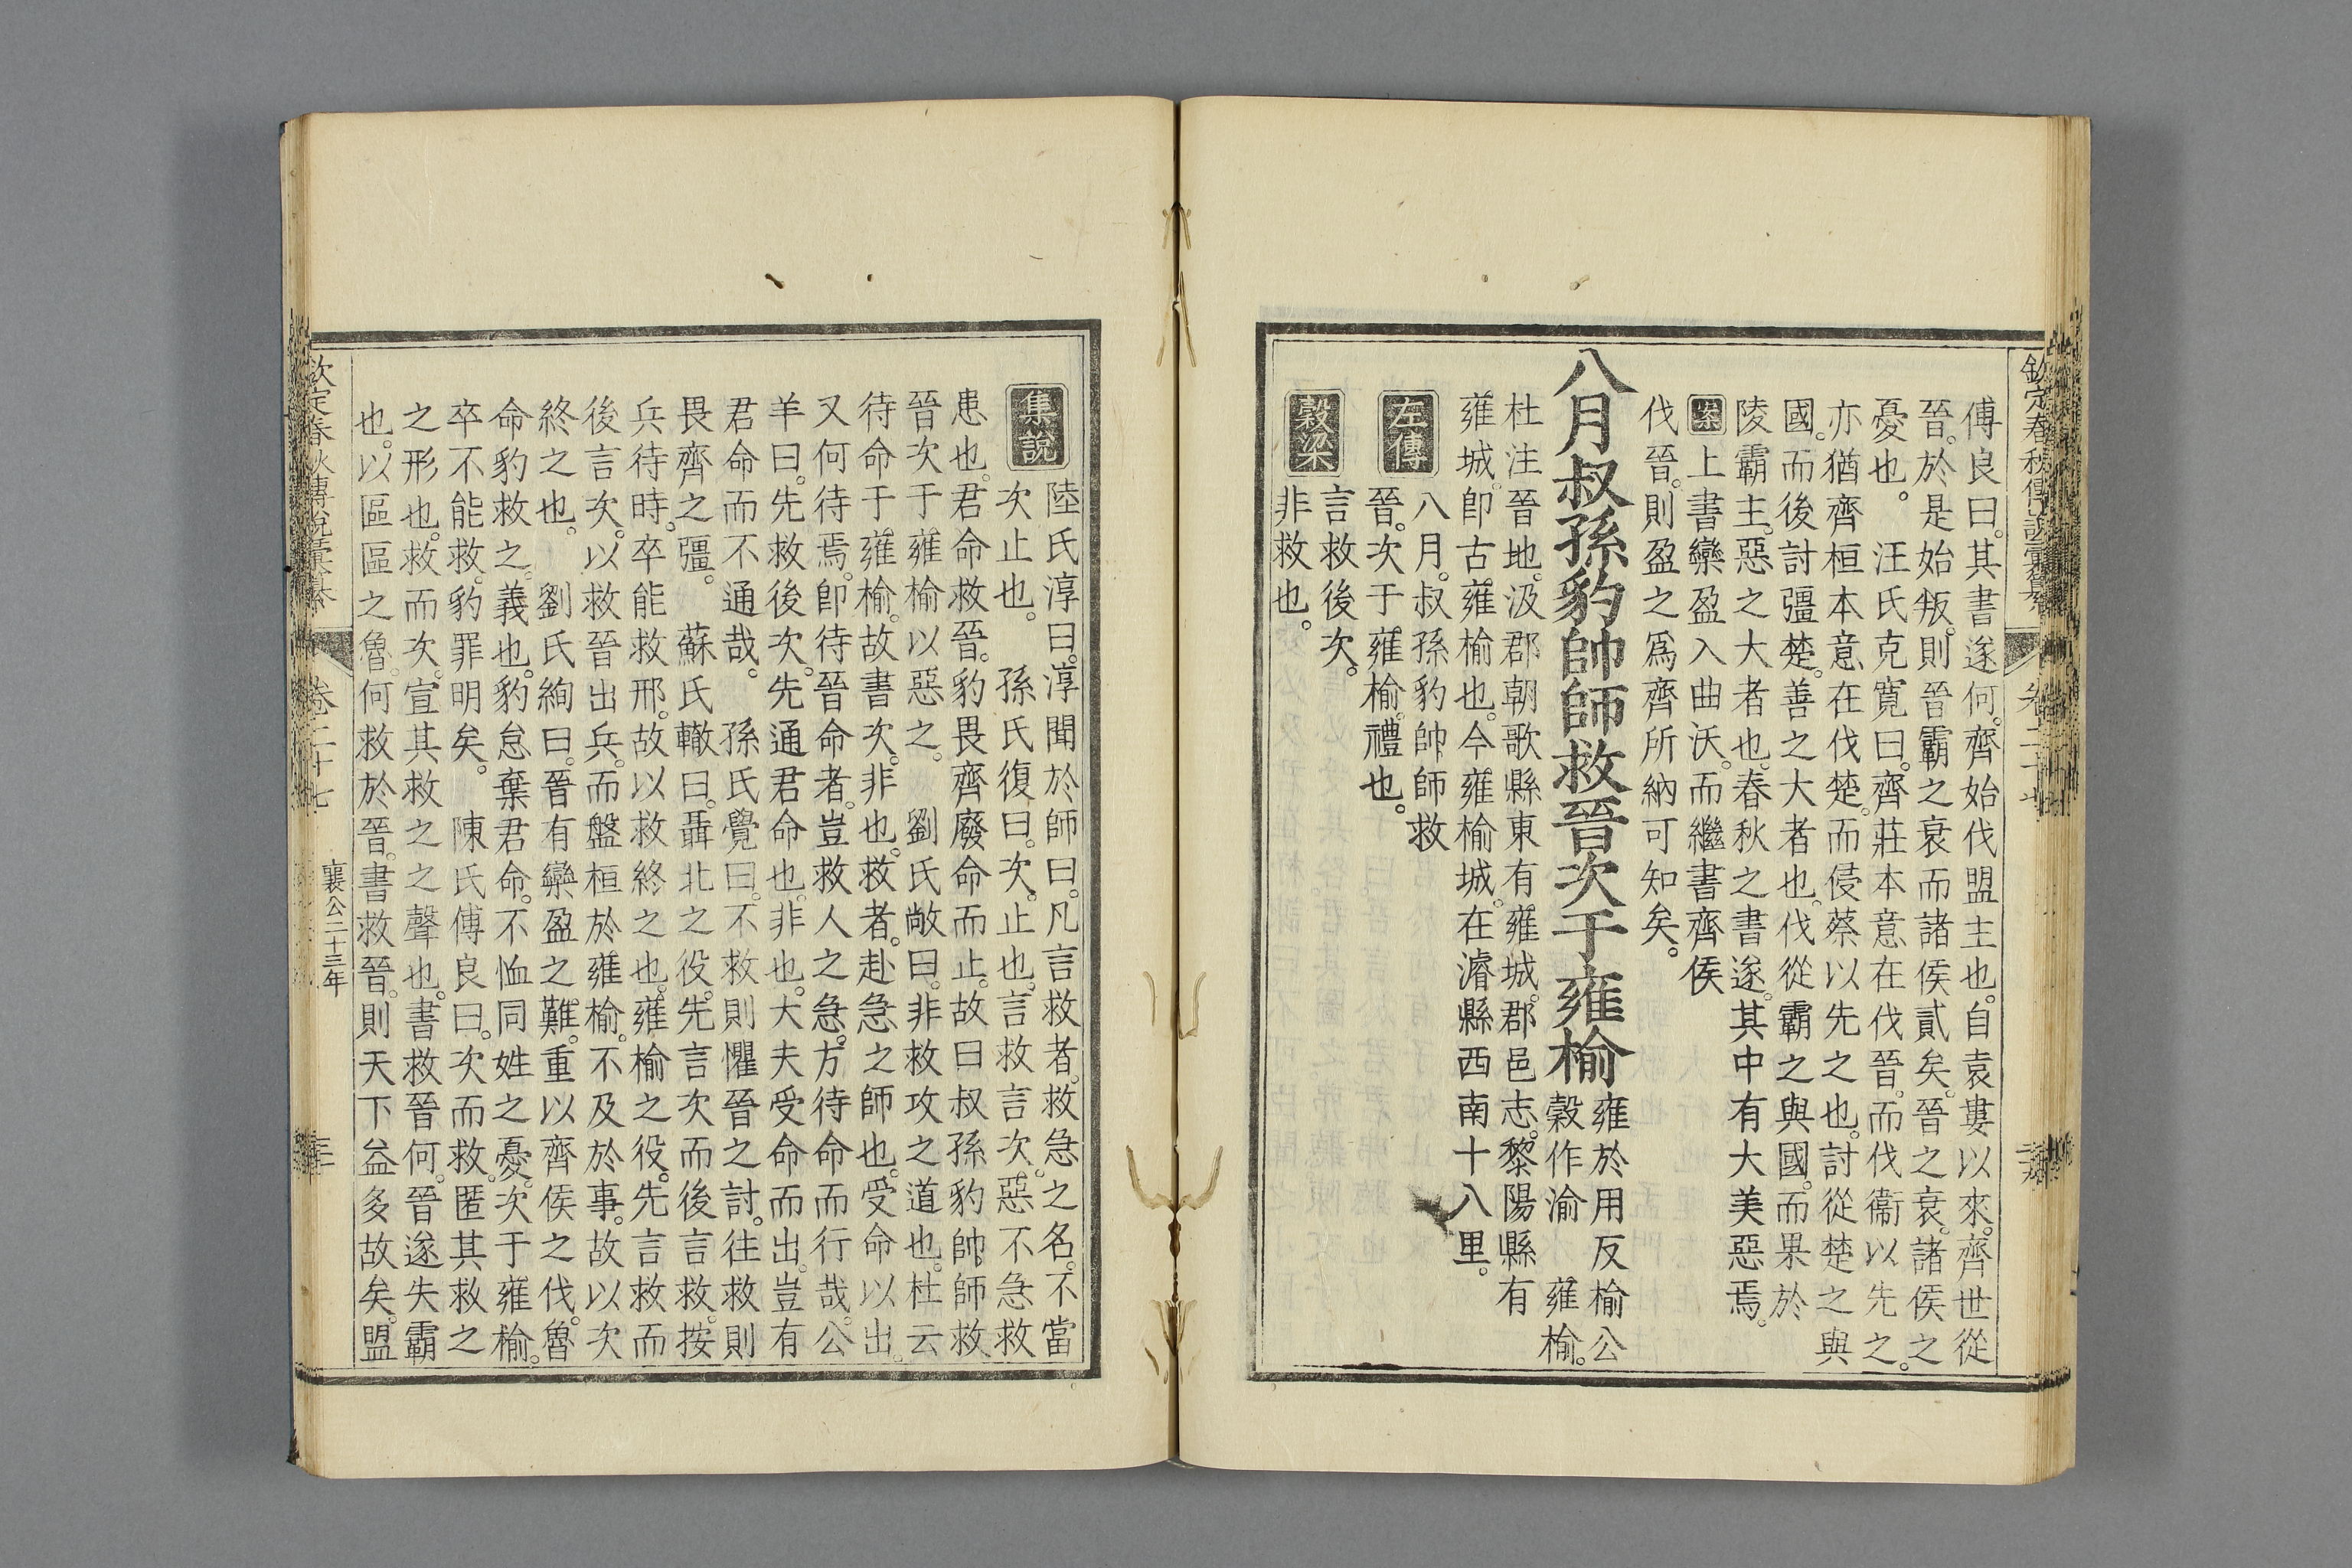 欽定春秋傳說彙纂 卷二十七
傅良曰。其書遂何。齊始伐盟主也。自袁婁以來。齊世從
晉。於是始叛。則晉霸之衰而諸侯貳矣。晉之衰。諸侯之
憂也。 汪氏克寬曰。齊莊本意在伐晉。而伐衞以先之。
亦猶齊桓本意在伐楚。而侵蔡以先之也。討從楚之與
國。而後討彊楚。善之大者也。伐從霸之與國。而果於
陵霸主。惡之大者也。春秋之書遂。其中有大美惡焉。
案上書欒盈入曲沃。而繼書齊侯
伐晉。則盈之爲齊所納可知矣。
八月叔孫豹帥師救晉次于雍榆
雍於用反榆公
穀作渝 雍榆。
杜注晉地。汲郡朝歌縣東有雍城。郡邑志。黎陽縣有
雍城。卽古雍榆也。今雍榆城。在濬縣西南十八里。
左傳
八月。叔孫豹帥師救
晉。次于雍榆。禮也。
穀梁
言救後次。
非救也。
集說
陸氏淳曰。淳聞於師曰。凡言救者。救急之名。不當
次止也。 孫氏復曰。次。止也。言救言次。惡不急救
患也。君命救晉。豹畏齊廢命而止。故曰叔孫豹帥師救
晉次于雍榆以惡之。 劉氏敞曰。非救攻之道也。杜云
待命于雍榆。故書次。非也。救者。赴急之師也。受命以出。
又何待焉。卽待晉命者。豈救人之急。方待命而行哉。公
羊曰。先救後次。先通君命也。非也。大夫受命而出。豈有
君命而不通哉。 孫氏覺曰。不救則懼晉之討。往救則
畏齊之彊。 蘇氏轍曰。聶北之役。先言次而後言救。按
兵待時。卒能救邢。故以救終之也。雍榆之役。先言救而
後言次。以救晉出兵。而盤桓於雍榆。不及於事。故以次
終之也。 劉氏絢曰。晉有欒盈之難。重以齊侯之伐。魯
命豹救之。義也。豹怠棄君命。不恤同姓之憂。次于雍榆。
卒不能救。豹罪明矣。 陳氏傅良曰。次而救。匿其救之
之形也。救而次。宣其救之之聲也。書救晉何。晉遂失霸
也。以區區之魯。何救於晉。書救晉。則天下益多故矣。盟
欽定春秋傳說彙纂 卷二十七 襄公二十三年